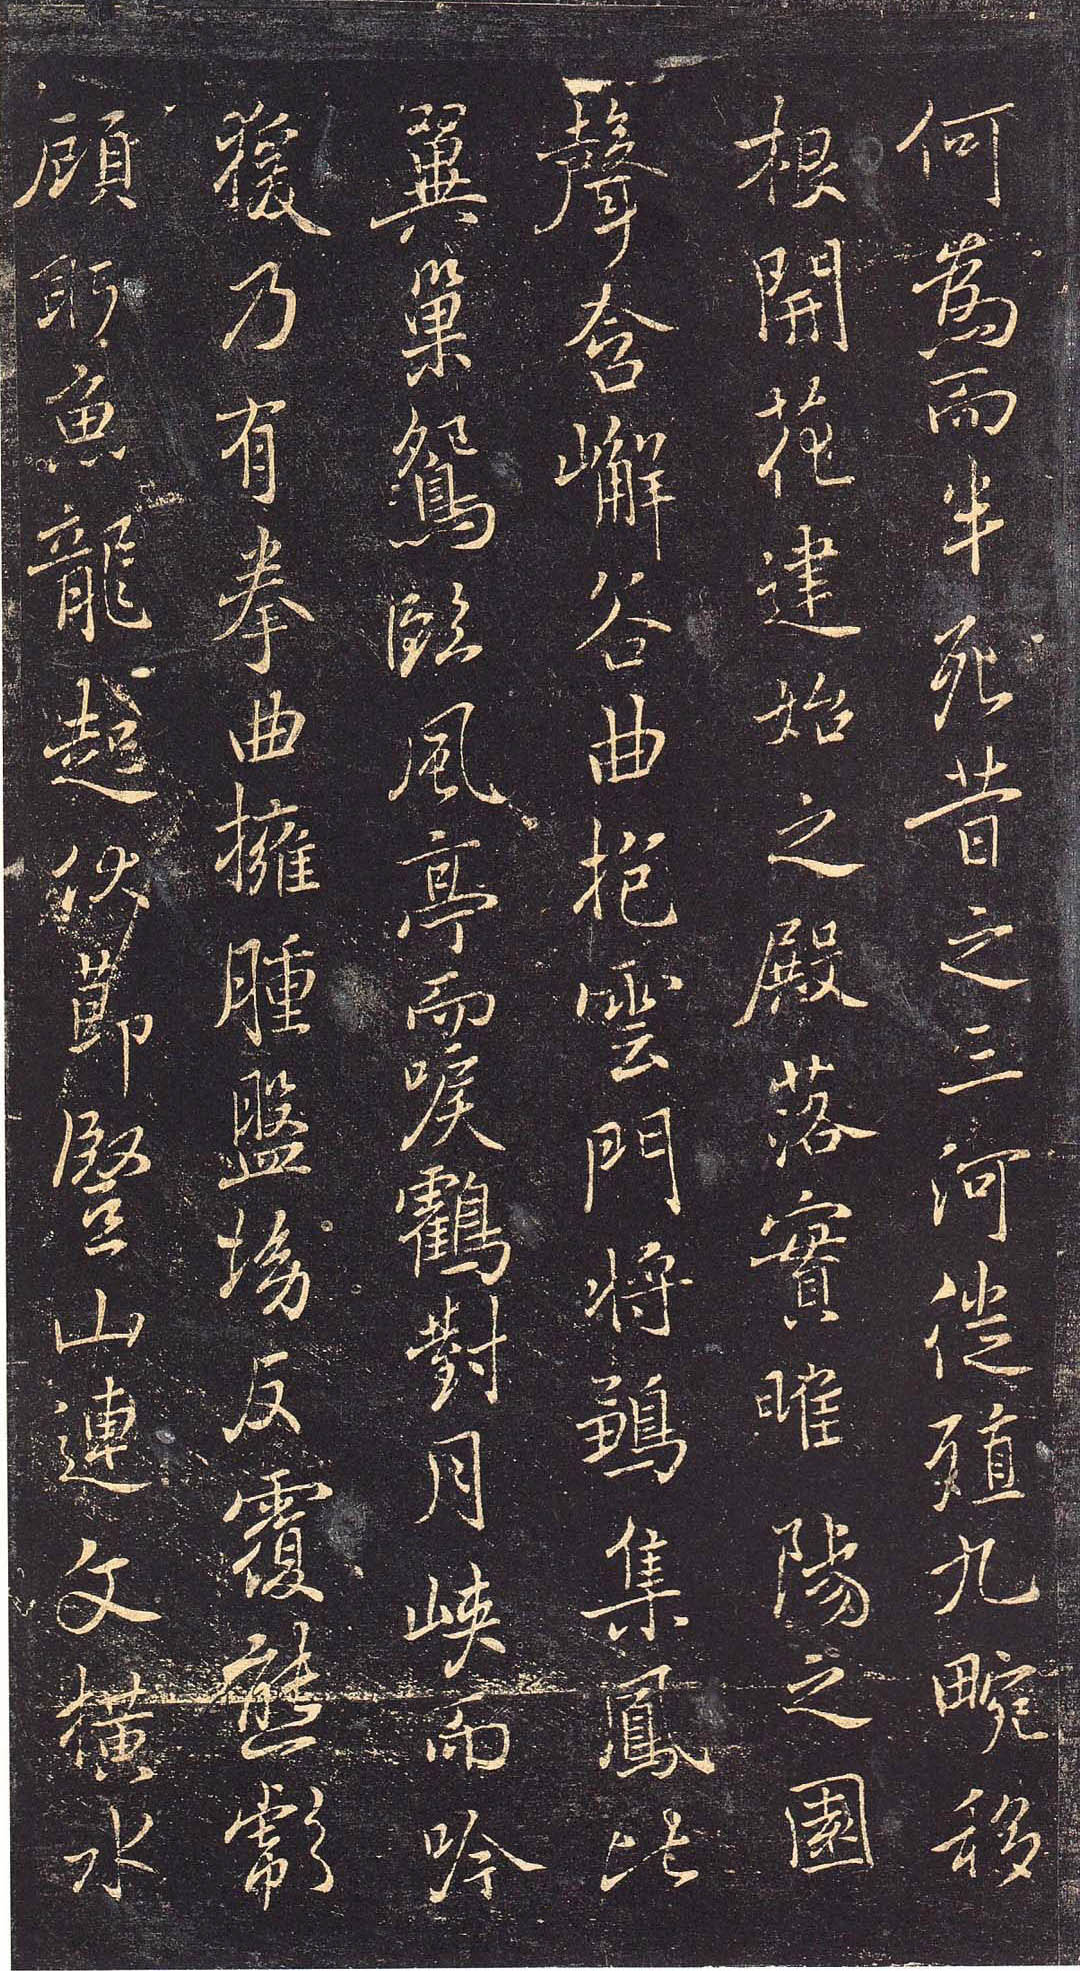 何爲而半死昔之三河徙殖九畹移
根開花建始之殿落實睢陽之園
聲含嶰谷曲抱雲門將鶵集鳳比
翼巢鴛臨風亭而唳鶴對月峽而吟
猨乃有拳曲擁腫盤坳反覆熊彪
顧盼魚龍起伏節豎山連文橫水